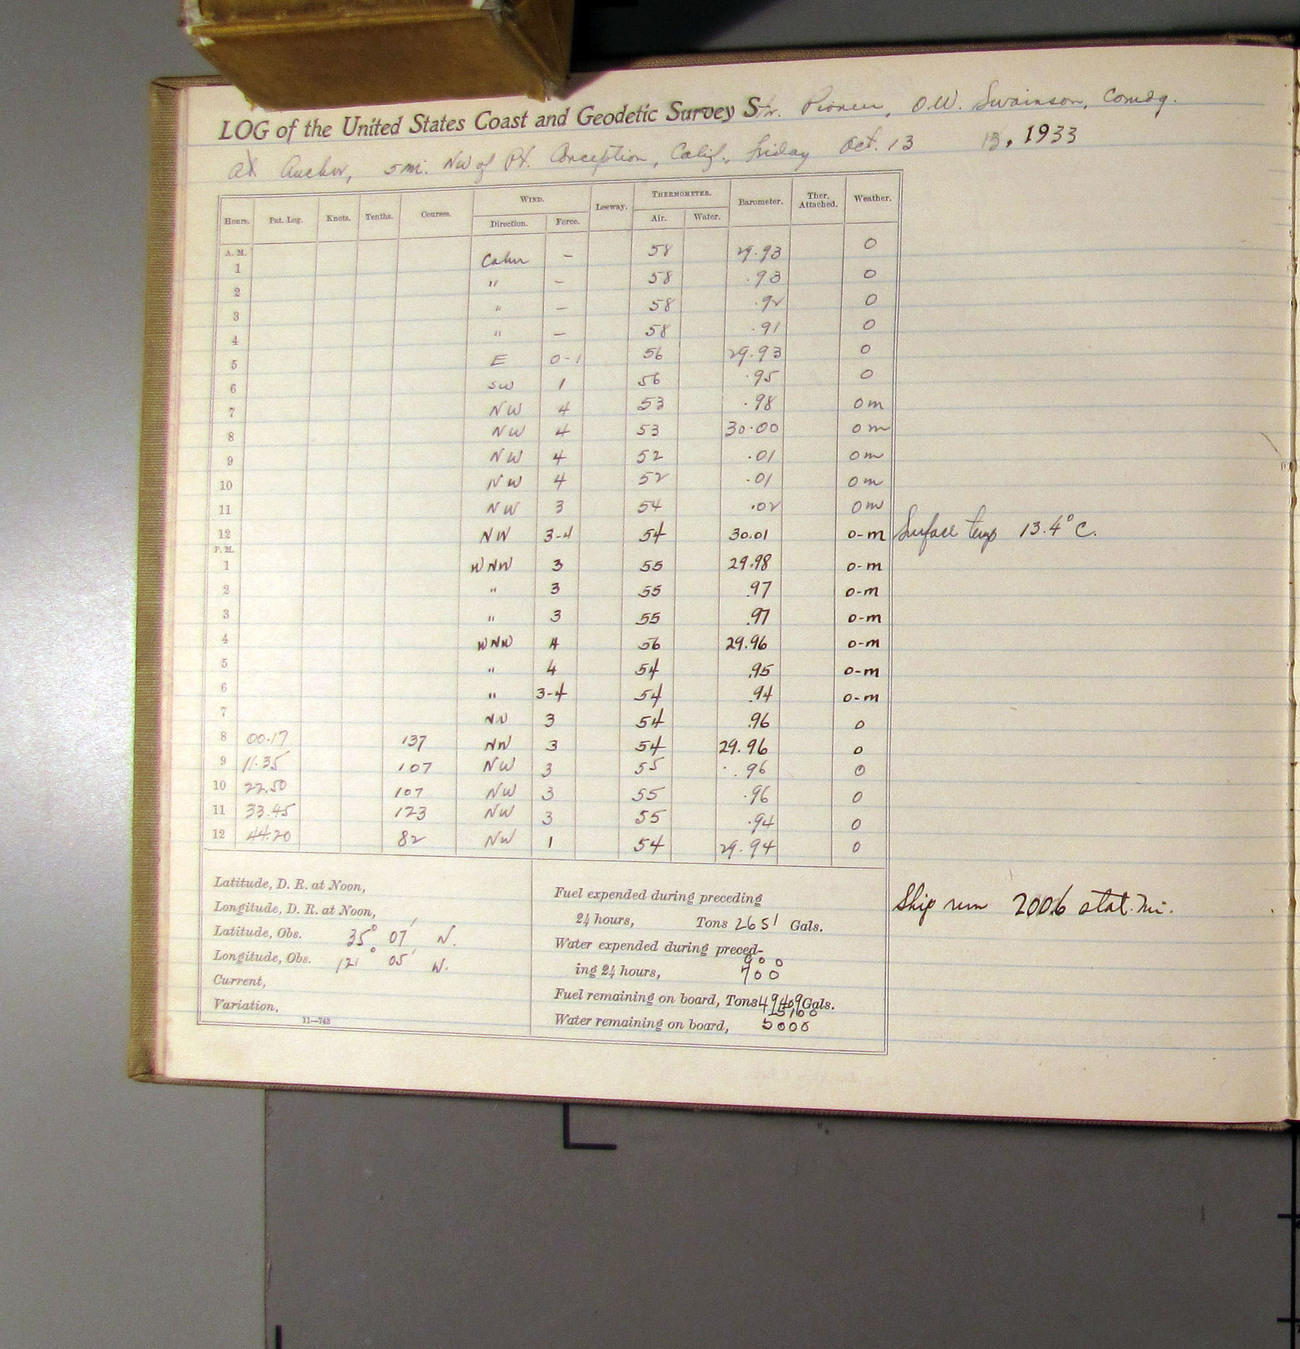 LOG of the United States Coast and Geodetic Survey Str. Pioneer, O.W. Swainson, Comdg.
at Anchor, 5 mi. NW of Pt. Conception, Calif., Friday Oct. 13 13, 1933
Hours. Pat. Log. Knots. Tenths. Courses. WIND. Leeway. THERMOMETER. Barometer. Ther. Attached. Weather.
Direction. Force. Air. Water.
A. M.
1 Calm — 58 29.93 0
2 " — 58 .93 0
3 " — 58 .92 0
4 " — 58 .91 0
5 E 0-1 56 29.93 0
6 SW 1 56 .95 0
7 NW 4 53 .98 0 m
8 NW 4 53 30.00 0 m
9 NW 4 52 .01 0 m
10 NW 4 52 .01 0 m
11 NW 3 54 .02 0 m
12 NW 3-4 54 30.01 0-m Surface temp 13.4° C.
P. M.
1 WNW 3 55 29.98 0-m
2 " 3 55 .97 0-m
3 " 3 55 .97 0-m
4 WNW 4 56 29.96 0-m
5 " 4 54 .95 0-m
6 " 3-4 54 .94 0-m
7 NW 3 54 .96 0
8 00.17 137 NW 3 54 29.96 0
9 11.35 107 NW 3 55 .96 0
10 22.50 107 NW 3 55 .96 0
11 33.45 123 NW 3 55 .94 0
12 44.20 82 NW 1 54 29.94 0
Latitude, D. R. at Noon,
Longitude, D. R. at Noon,
Latitude, Obs. 35° 07' N.
Longitude, Obs. 121° 05' W.
Current,
Variation,
11—743
Fuel expended during preceding
24 hours, Tons 2651 Gals.
Water expended during preced-
900
ing 24 hours, 700
Fuel remaining on board, Tons 49409 Gals.
15100
Water remaining on board, 5000
Ship run 200.6 stat. mi.